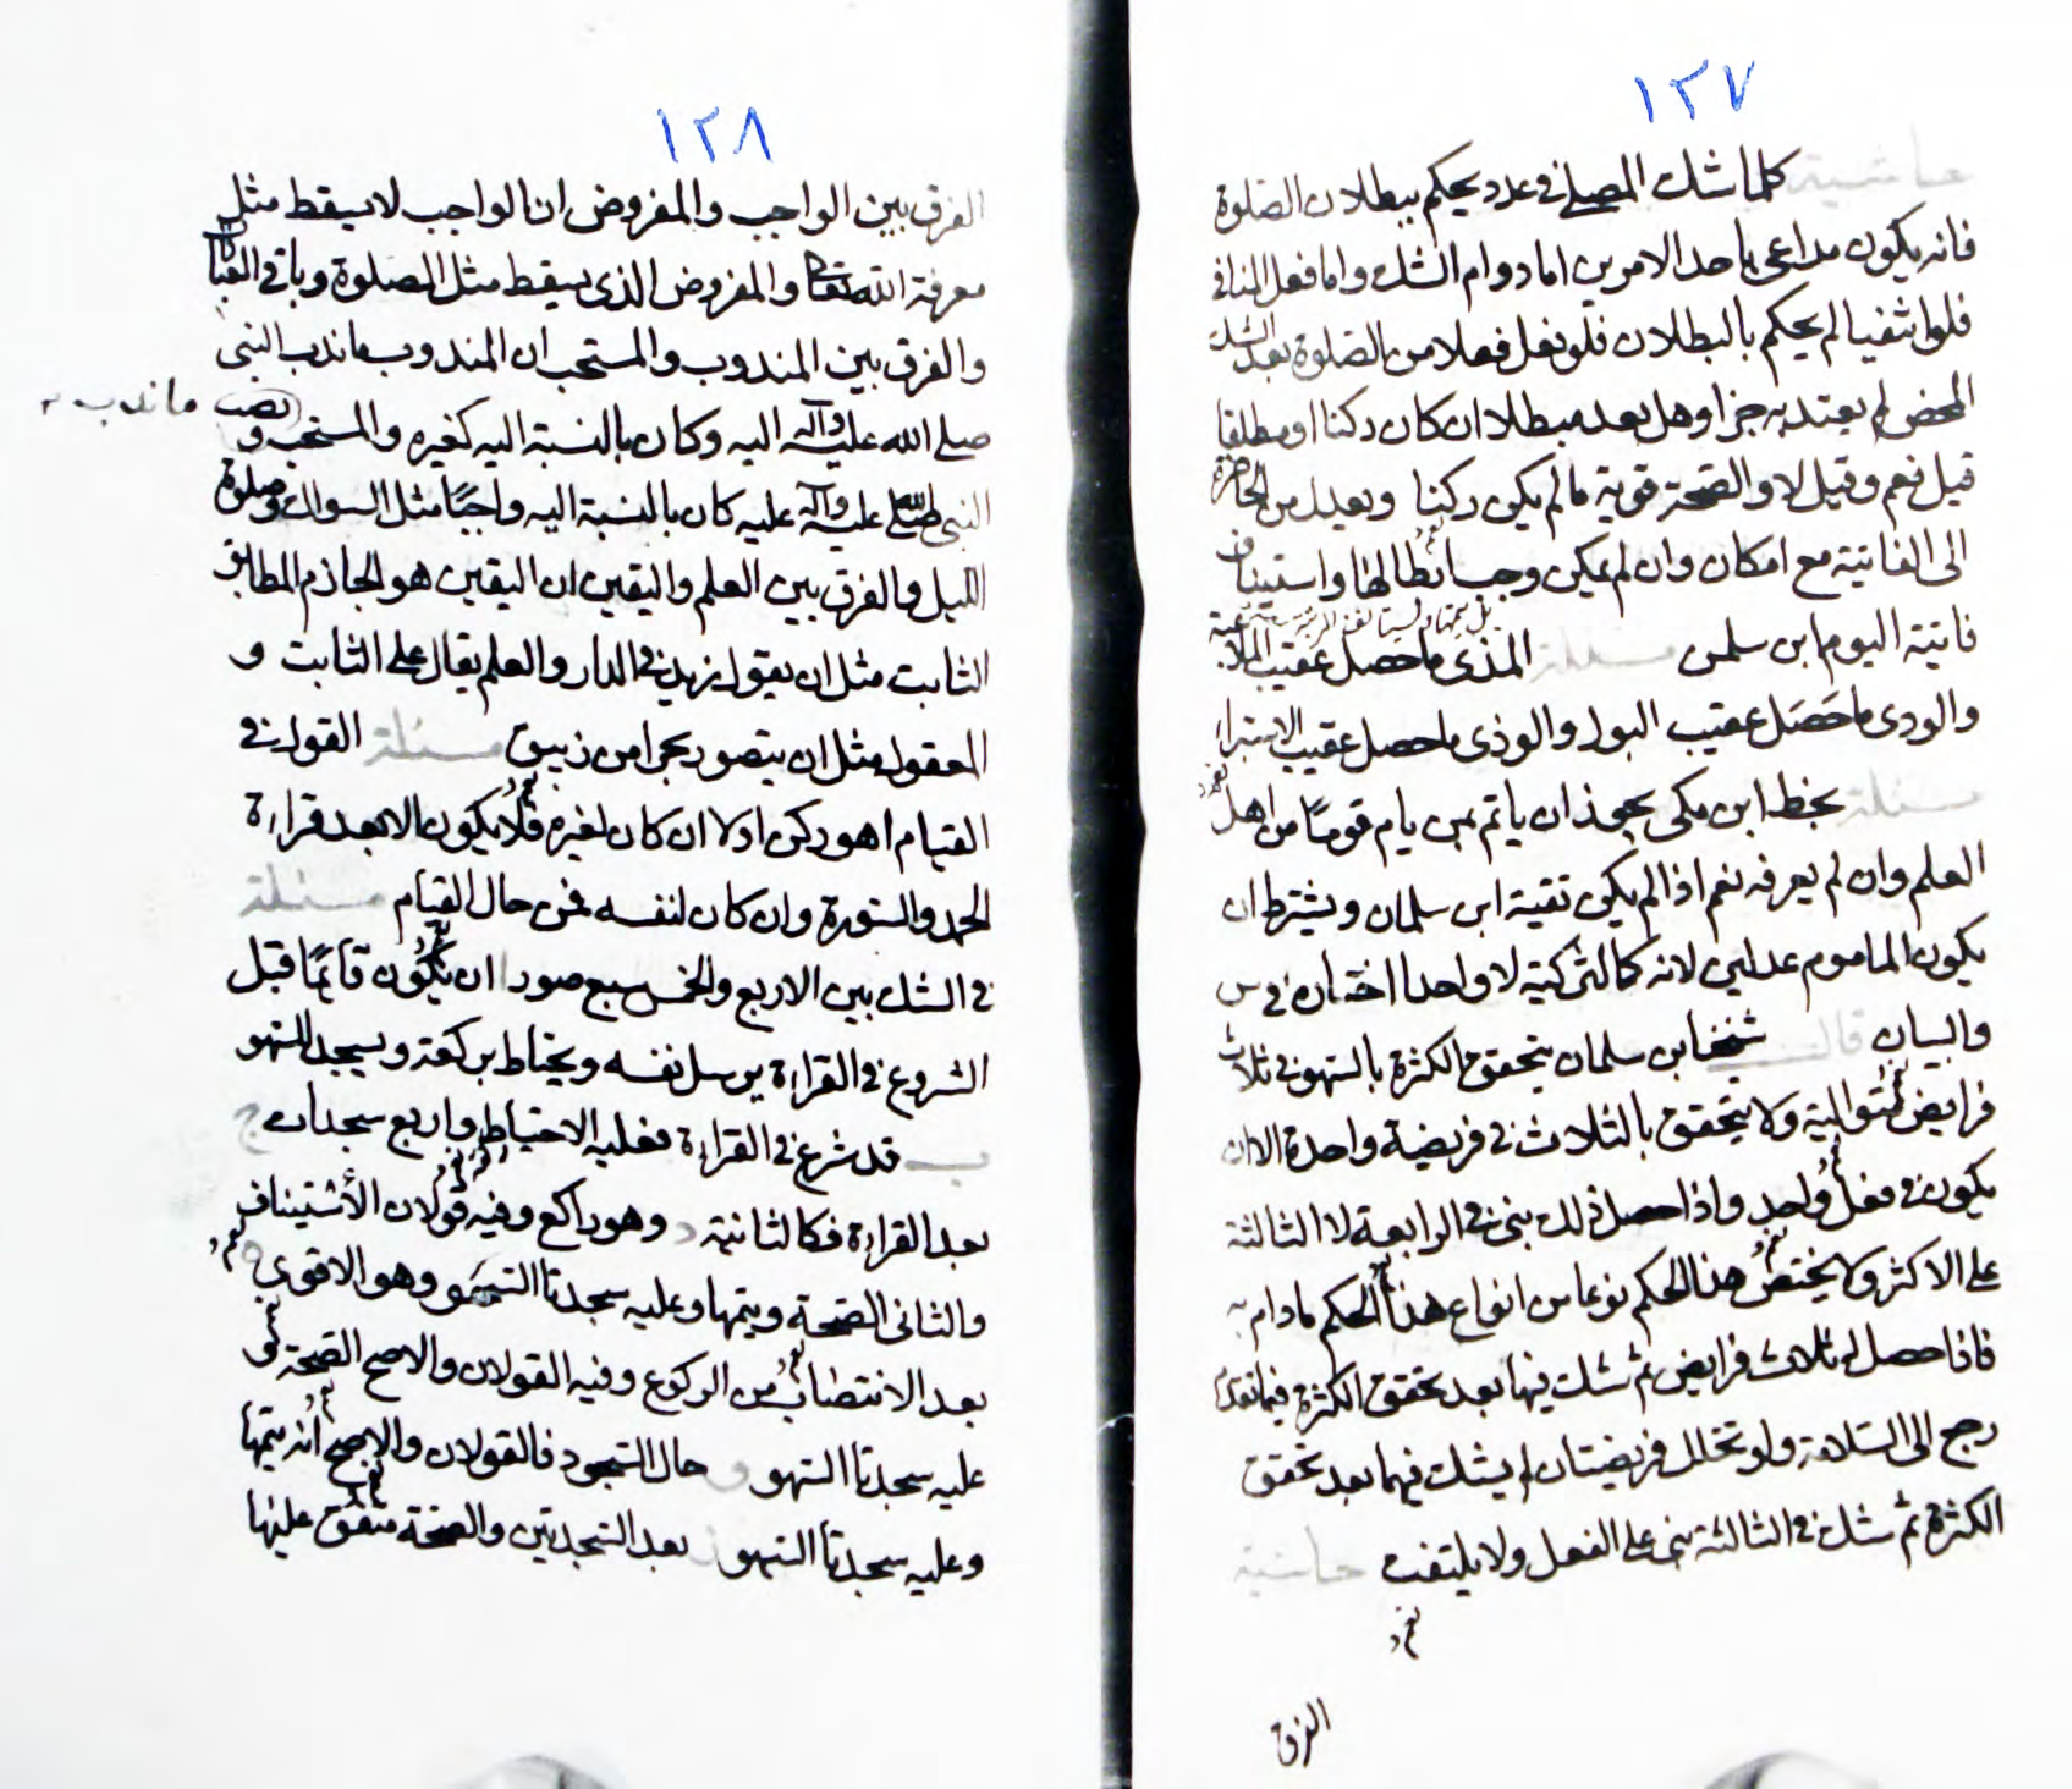 ١٢٧
حاشية كلما شك المصلي في عدد يحكم ببطلان الصلوة
فانه يكون مداعى باحد الامرين اما دوام الشك واما فعل المنافي
فلو انتفيا لم يحكم بالبطلان فلو فعل فعلا من الصلوة بعد الشك
المحض لم يعتد به جزا وهل يعد مبطلا ان كان ركنا او مطلقا
قيل نعم وقيل لا والصحة قوية ما لم يكن ركنا ويعدل من الحاضرة
الى الفايتة مع امكان وان لم يمكن وجب ابطالها واستيناف
فايتة اليوم ابن سلمن مسئلة المذى ما حصل عقيب الملاعبة
والودى ما حصل عقيب البول والوذى ما حصل عقيب الاستبراء
مسئلة بخط ابن مكى يجوز ان ياتم بمن يام قومًا من اهل
العلم وان لم يعرفه نعم اذا لم يكن تقية ابن سلمان ويشترط ان
يكون الماموم عدلين لانه كالتزكية لا واحدا اختاره في س
والبيان قال شيخنا ابن سلمان يتحقق الكثرة بالسهو في ثلاث
فرايض متوالية ولا يتحقق بالثلاث في فريضة واحدة الا ان
يكون في فعل واحد واذا حصل ذلك بنى في الرابعة لا الثالثة
على الاكثر ولا يختص هذا الحكم نوعا من انواع هذا الحكم مادام به
فاذا حصل له ثلاث فرايض لم شك فيها بعد تحقق الكثرة فيما تقدم
رجع الى السلامة ولو تخلل فريضتان لم يشك فيهما بعد تحقق
الكثرة ثم شك في الثالثة بنى على الفعل ولا يلتفت حاشية
الفرق
١٢٨
الفرق بين الواجب والمفروض ان الواجب لا يسقط مثل
معرفة الله تعالى والمفروض الذى يسقط مثل الصلوة وباقي العبادات
والفرق بين المندوب والمستحب ان المندوب ما ندب النبى
صلى الله عليه وآله اليه وكان بالنسبة اليه كغيره والمستحب و
ما ندب
النبى صلى الله عليه وآله عليه كان بالنسبة اليه واجبًا مثل السواك وصلوة
الليل والفرق بين العلم واليقين ان اليقين هو الجازم المطابق
الثابت مثل ان يقول زيد في الدار والعلم يقال على الثابت و
المعقول مثل ان يتصور بحرا من زيبق مسئلة القول في
القيام اهو ركن اولا ان كان لغيره فلا يكون الا بعد قراءة
الحمد والسورة وان كان لنفسه فمن حال القيام مسئلة
في الشك بين الاربع والخمس سبع صور ا ان يكون قائمًا قبل
الشروع في القراءة يرسل نفسه ويحتاط بركعة ويسجد للسهو
ب قد شرع في القراءة فعليه الاحتياط واربع سجدات ج
بعد القراءة فكالثانية د وهو راكع وفيه قولان الأستيناف
والثانى الصحة ويتمها وعليه سجدتا السهو وهو الاقوى ه
بعد الانتصاب من الركوع وفيه القولان والاصح الصحة و
عليه سجدتا السهو و حال السجود فالقولان والاصح أنه يتمها
وعليه سجدتا السهو ز بعد السجدتين والصحة متفق عليها